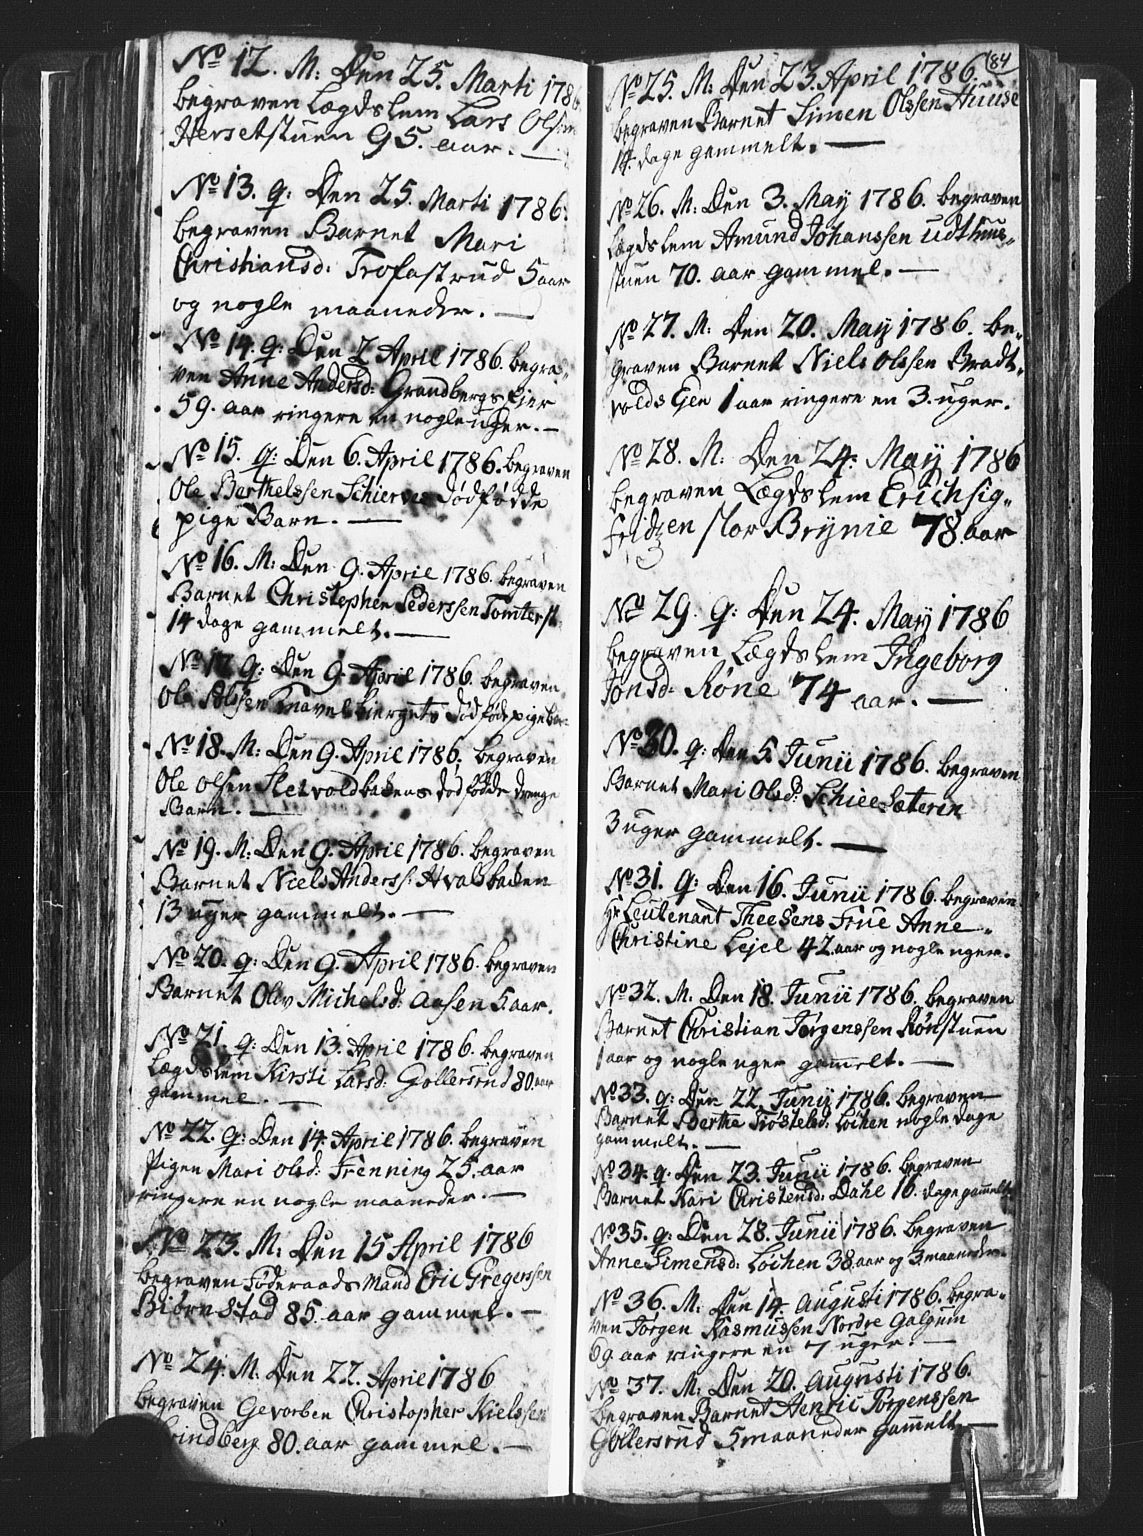 No 12. M: Den 25. Marti 1786
begraven Lægdslem Lars Olsen
Hersetstuen 95. aar. —
No 13. q: Den 25. Marti 1786.
begraven Barnet Mari
Christiansd: Trofastrud 5 aar
og nogle maaneder. —
No 14. q: Den 2 April 1786. begra-
ven Anne Andersd: Grandbergs Eier
59. aar ringere en nogle uger. —
No 15. q: Den 6. April 1786. begraven
Ole Berthelssen Schierves dødfødde
pige Barn. —
No 16. M: Den 9. April 1786. begraven
Barnet Christephen Pederssen Tomterst:
14 dage gammelt. —
No 17. q: Den 9. April 1786. begraven
Ole Olssen dødføde pige Barn
No 18. M: Den 9. April 1786. begraven
Ole Olsen Sletvoldbakens dødfødde drenge
Barn. —
No 19. M: Den 9. April 1786. begraven
Barnet Niels Anderss: Hvalsbaken
13 uger gammelt. —
No 20. q: Den 9. April 1786. begraven
Barnet Oliv Michelsd: Aasen 5 aar.
No 21. q: Den 13. April 1786. begraven
Lægdslem Kirsti Larsd: Gollersrud 80 aar
gammel. —
No 22. q: Den 14. April 1786. begraven
Pigen Mari Olsd: Frenning 25. aar
ringere en nogle maaneder. —
No 23. M: Den 15 April 1786
begraven Føderaads Mand Eric Gregerssen
Biørnstad 85. aar gammel. —
No 24. M: Den 22. April 1786
begraven Gevorben Christopher Nielssen
80. aar gammel. —
84
No 25. M: Den 23. April 1786.
begraven Barnet Simen Olssen Huuse
14. dage gammelt. —
No 26. M: Den 3. May 1786. begraven
Lægdslem Amund Johanssen Udthuus-
stuen 70. aar gammel. —
No 27. M: Den 20. May 1786. be-
graven Barnet Niels Olssen Bradt-
volds Eien 1 aar ringere en 3. uger.
No 28. M: Den 24. May 1786
begraven Lægdslem Erich Sig-
fridzen stor Brynie 78 aar
No 29. q: Den 24. May 1786
begraven Lægdslem Ingeborg
Jonsd: Røne 74 aar. —
No 30. q: Den 5 Junii 1786. begraven
Barnet Mari Olsd: Schiee Sæteren
3 uger gammelt. —
No 31. q: Den 16. Junii 1786. begraven
Hr Leutenant Theesens Frue Anne-
Christine Lejel 42. aar og nogle uger.
No 32. M. Den 18. Junii 1786. begraven
Barnet Christian Jørgenssen Rønstuen
1 aar og nogle uger gammelt. —
No 33. q: Den 22. Junii 1786. begraven
Barnet Berthe Trøstelsd: Løchen nogle dage
gammelt. —
No 34. q: Den 23. Junii 1786. begraven
Barnet Kari Christensd: Dahl 16. dage gammelt
No 35. q: Den 28. Junii 1786. begraven
Anne Simensd: Løchen 38 aar og 3. maaneder.
No 36. M: Den 14. Augusti 1786. begra-
ven Jørgen Rasmussen Nordre Galgum
69. aar ringere en 7 uger. —
No 37. M: Den 20. Augusti 1786.
begraven Barnet Henric Jørgenssen
Gollersrud 5 maaneder gammelt —